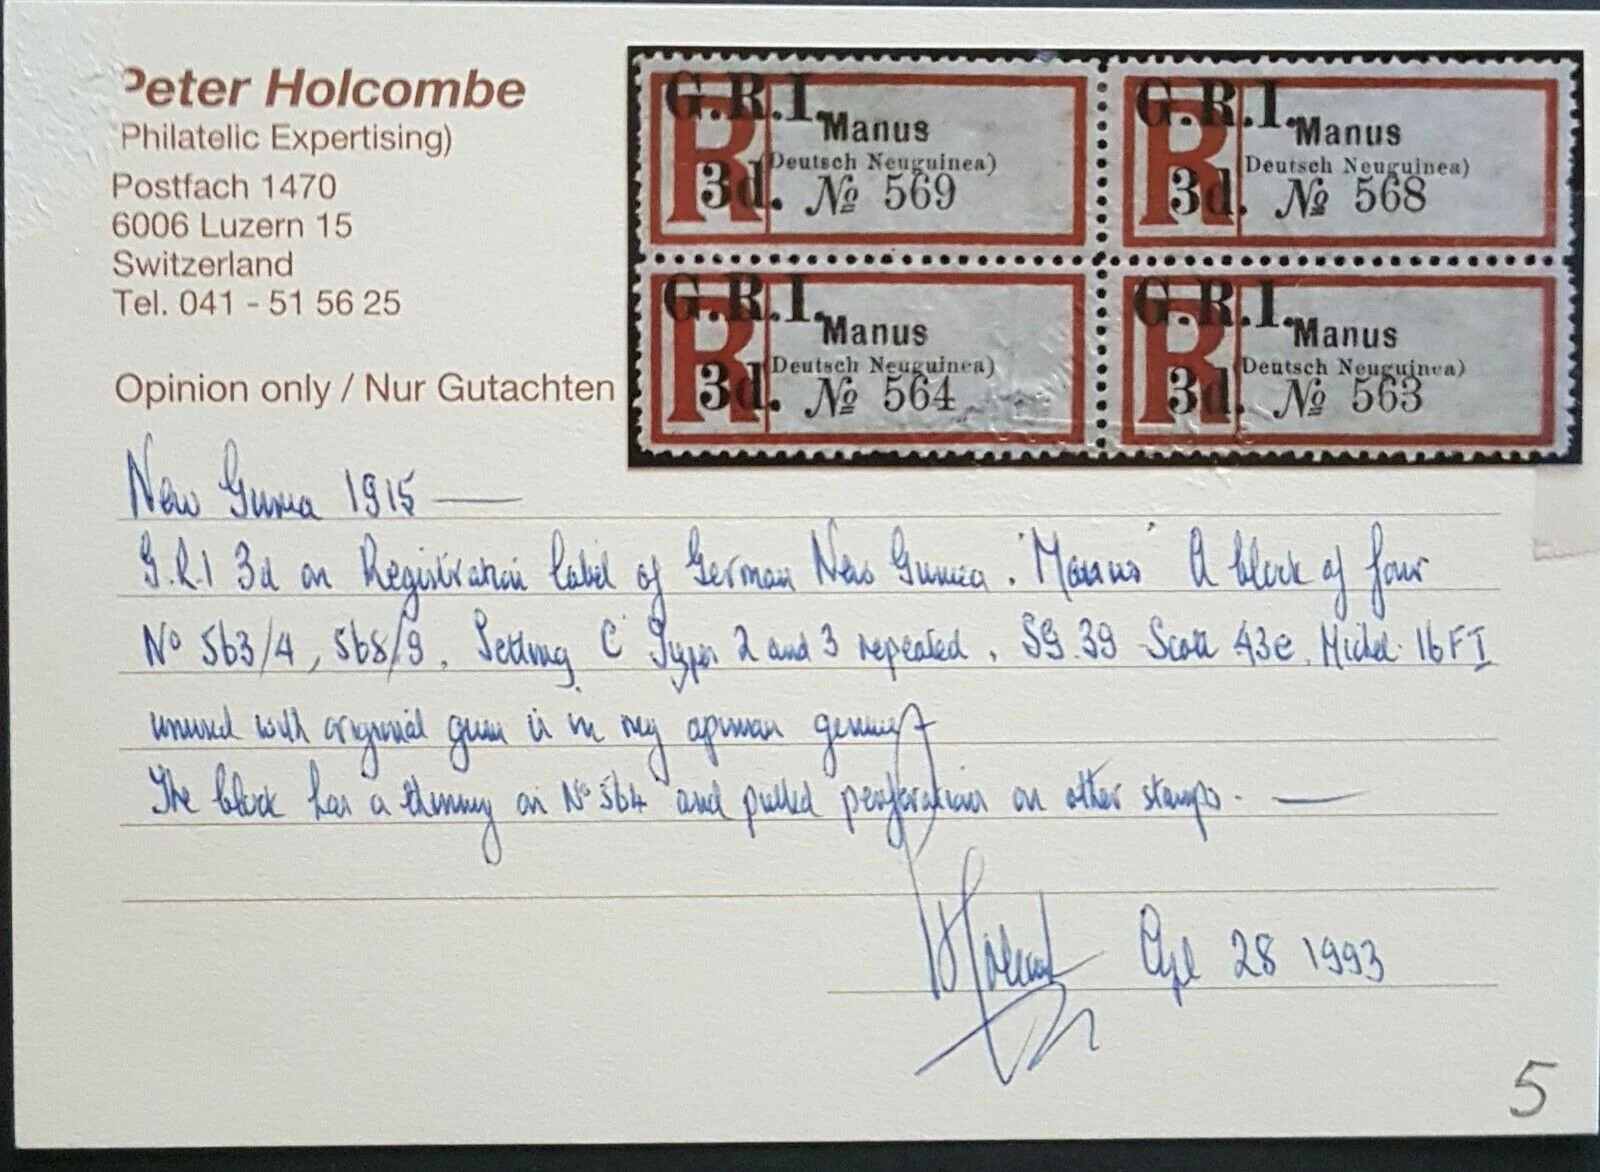 Peter Holcombe
Philatelic Expertising)
Postfach 1470
6006 Luzern 15
Switzerland
Tel. 041 - 51 56 25
Opinion only / Nur Gutachten
G.R.I.
Manus
(Deutsch Neuguinea)
3d. № 569
G.R.I.
Manus
(Deutsch Neuguinea)
3d. № 568
G.R.I.
Manus
(Deutsch Neuguinea)
3d. № 564
G.R.I.
Manus
(Deutsch Neuguinea)
3d. № 563
R
R
R
R
New Guinea 1915 —
G.R.I 3d on Registration label of German New Guinea. 'Manus' A block of four
No 563/4, 568/9. Setting C Types 2 and 3 repeated. SG.39 Scott 43e. Michel. 16FI
unused with original gum is in my opinion genuine
The block has a thinning on No 564 and pulled perforation on other stamps. —
Holcombe Apl 28 1993
5